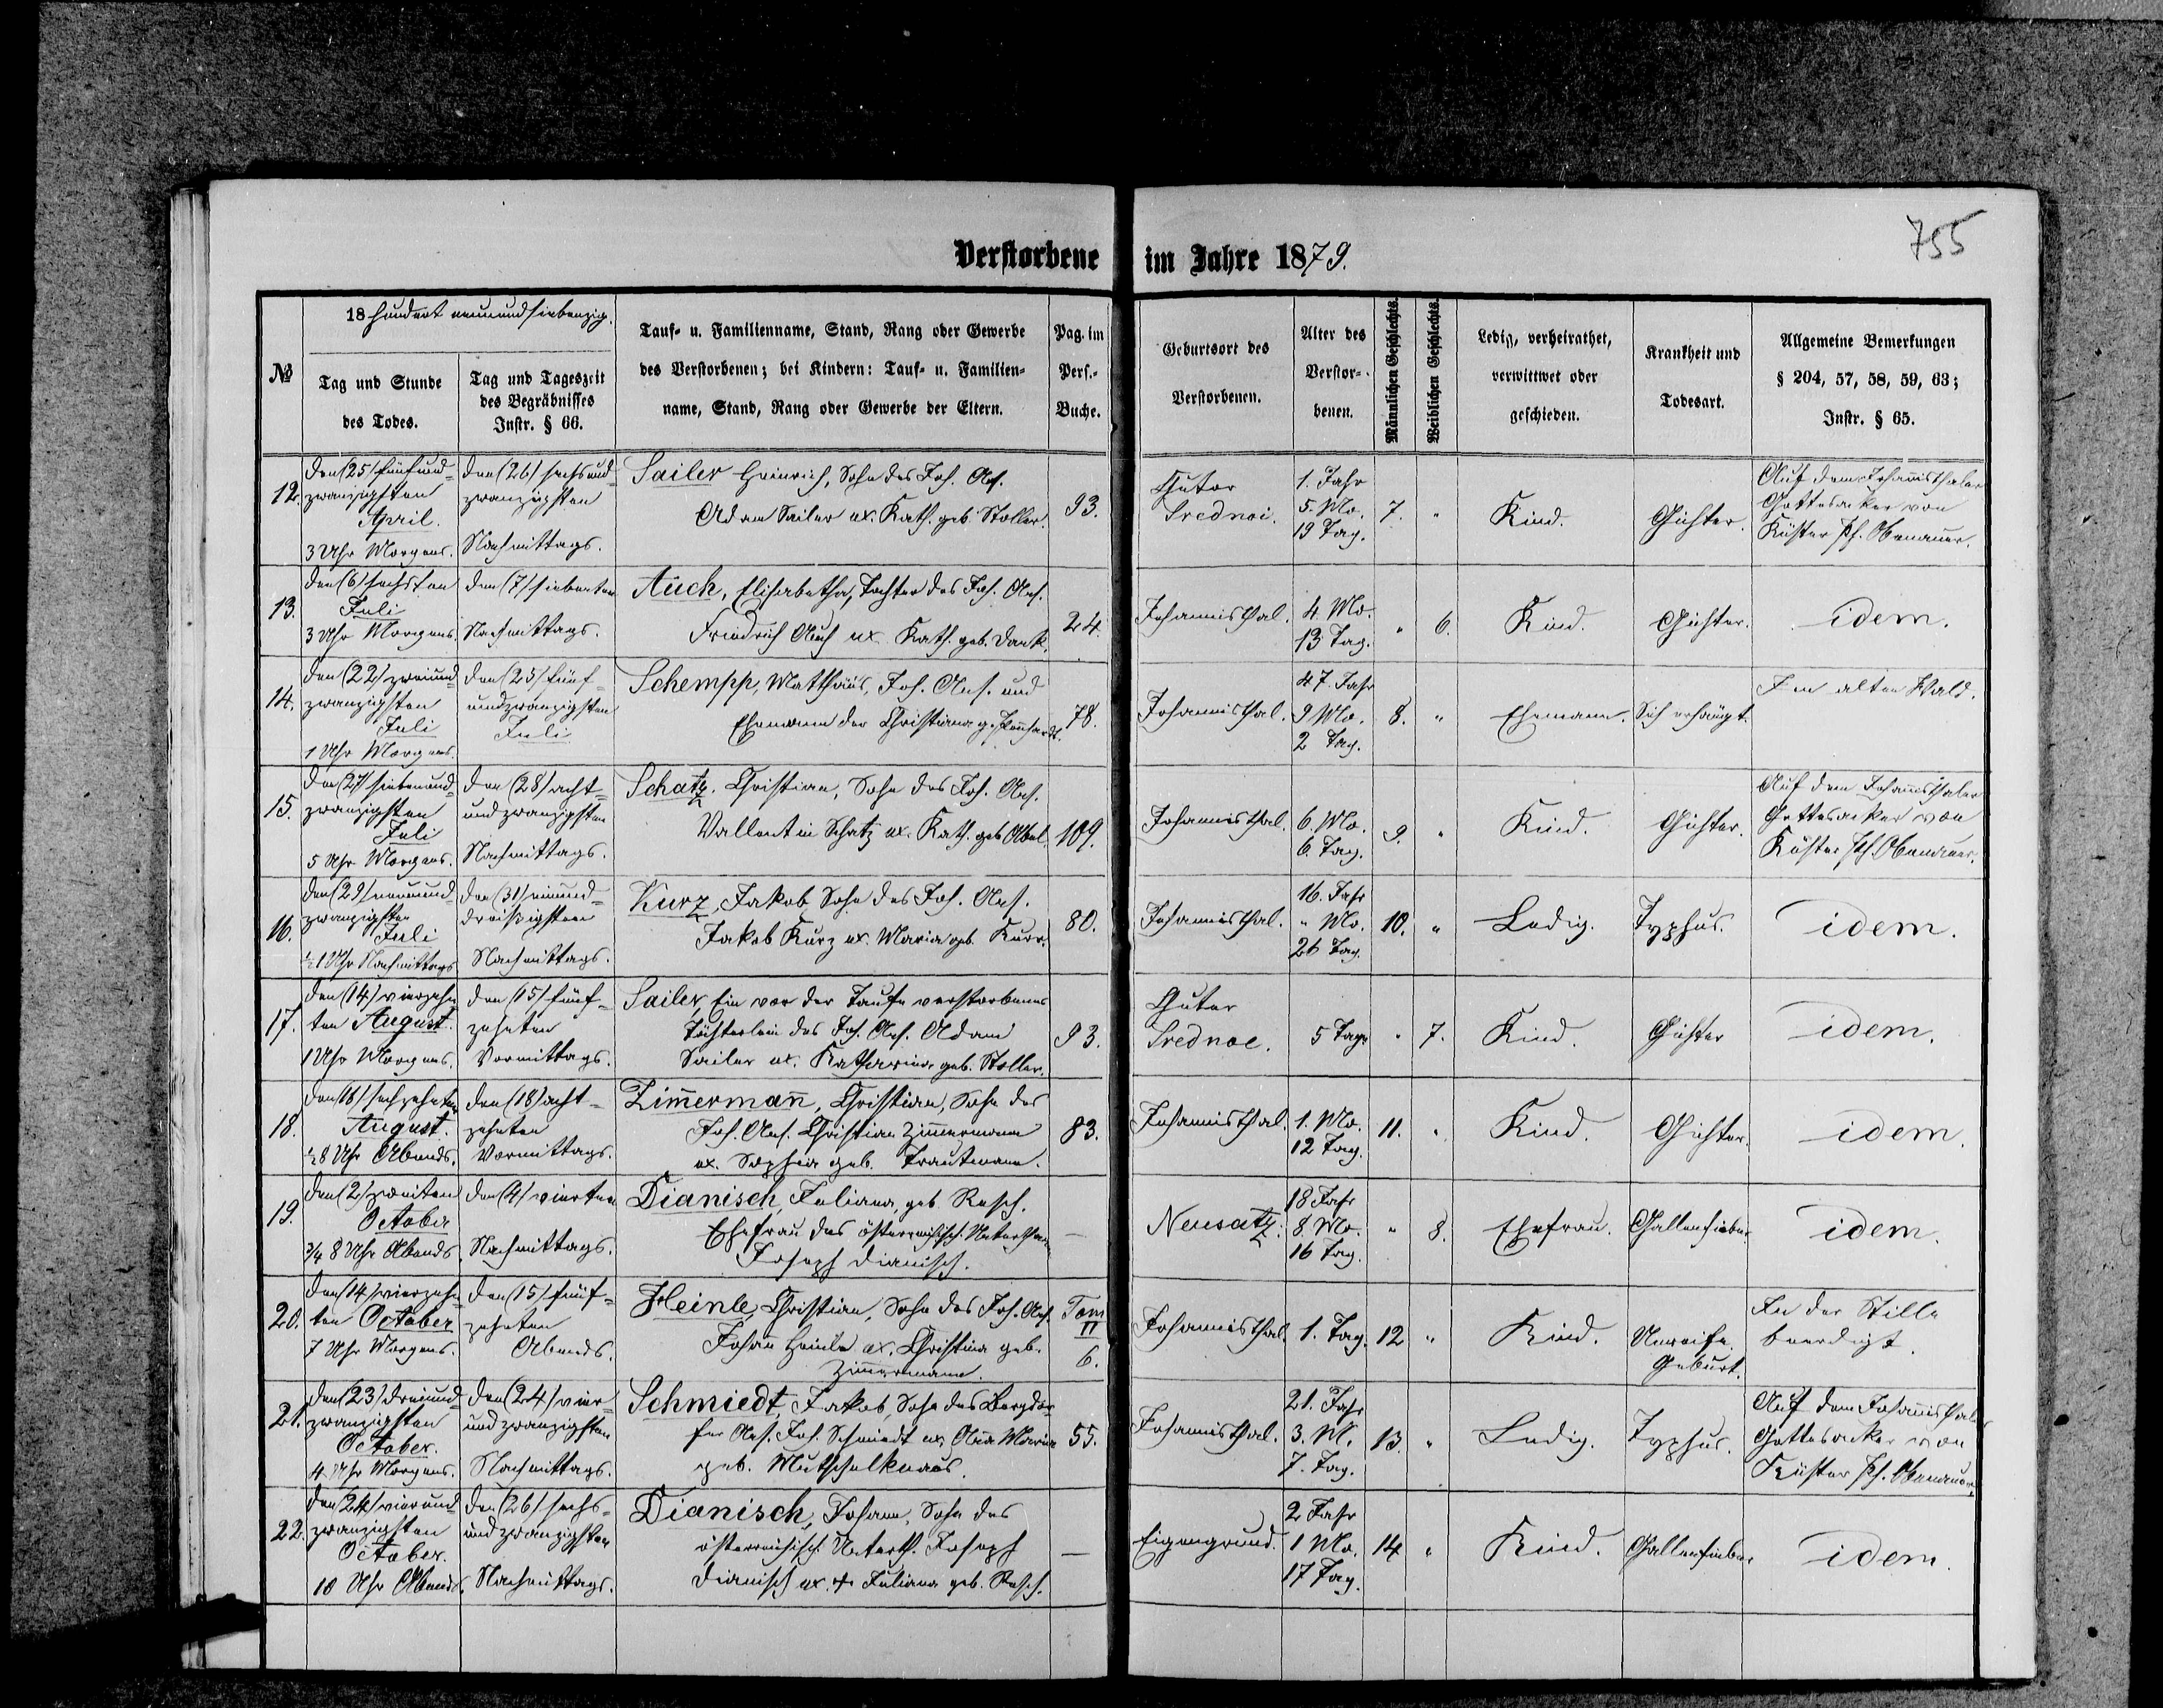 755
Verstorbene im Jahre 1879.
№
18 hundert neunundsiebenzig.
Tag und Stunde
des Todes.
Tag und Tageszeit
des Begräbnisses
Instr. § 66.
Tauf- u. Familienname, Stand, Rang oder Gewerbe
des Verstorbenen; bei Kindern: Tauf- u. Familien-
name, Stand, Rang oder Gewerbe der Eltern.
Pag. im
Pers.-
Buche.
Geburtsort des
Verstorbenen.
Alter des
Verstor-
benen.
Männlichen Geschlechts.
Weiblichen Geschlechts.
Ledig, verheirathet,
verwittwet oder
geschieden.
Krankheit und
Todesart.
Allgemeine Bemerkungen
§ 204, 57, 58, 59, 63;
Instr. § 65.
12.
den (25) fünfund-
zwanzigsten
April.
3 Uhr Morgens.
den (26) sechsund-
zwanzigsten
Nachmittags.
Sailer Heinrich, Sohn des Joh. Ans.
Adam Sailer ux. Kath. geb. Stoller.
93.
Gutor
Srednoi.
1. Jahr
5. Mo.
19 Tag.
7.
"
Kind.
Gichter.
Auf dem Johannisthaler
Gottesacker von
Küster Ph. Obenauer.
13.
den (6) sechsten
Juli
3 Uhr Morgens.
den (7) siebenten
Nachmittags.
Auch, Elisabetha, Tochter des Joh. Ans.
Friedrich Auch ux. Kath. geb.
24.
Johannisthal.
4. Mo.
13 Tag.
"
6.
Kind.
Gichter.
idem.
14.
den (22) zweiund-
zwanzigsten
Juli
1 Uhr Morgens.
den (25) fünf-
undzwanzigsten
Juli
Schempp, Matthäus, Joh. Ans. und
Ehemann der Christiana g.
78.
Johannisthal.
47. Jahr
9 Mo.
2 Tag.
8.
"
Ehemann.
Sich erhängt.
Im alten Wald.
15.
den (27) siebenund-
zwanzigsten
Juli
5 Uhr Morgens.
den (28) acht-
undzwanzigsten
Nachmittags.
Schatz. Christian, Sohn des Joh. Ans.
Vallentin Schatz ux. Kath. geb. Abel
109.
Johannisthal.
6. Mo.
6. Tag.
9.
"
Kind.
Gichter.
Auf dem Johannisthaler
Gottesacker von
Küster Ph. Obenauer.
16.
den (29) neunund-
zwanzigsten
Juli
½1 Uhr Nachmittags
den (31) einund-
dreißigsten
Nachmittags.
Kurz, Jakob Sohn des Joh. Ans.
Jakob Kurz ux. Maria geb. Kurr.
80.
Johannisthal.
16. Jahr
" Mo.
26 Tag.
10.
"
Ledig.
Typhus.
idem.
17.
den (14) vierzehn-
ten August.
1 Uhr Morgens.
den (15) fünf-
zehnten
Vormittags.
Sailer, Ein vor der Taufe verstorbenes
Töchterlein des Joh. Ans. Adam
Sailer ux. Katharina geb. Stoller.
93.
Gutor
Srednoe.
5 Tage
"
7.
Kind.
Gichter
idem.
18.
den (16) sechzehnten
August.
½8 Uhr Abends.
den (18) acht-
zehnten
Vormittags.
Zimmermann, Christian, Sohn des
Joh. Ans. Christian Zimmermann
ux. Sophia geb. Trautmann.
83.
Johannisthal.
1. Mo.
12 Tag.
11.
"
Kind.
Gichter.
idem.
19.
den (2) zweiten
October
¾ 8 Uhr Abends
den (4) vierten
Nachmittags.
Dianisch, Juliana, geb. Resch.
Ehefrau des österreichisch. Unterthan
Joseph Dianisch.
—
Neusatz.
18 Jahr
8. Mo.
16 Tag.
"
8.
Ehefrau.
Gallenfieber
idem.
20.
den (14) vierzehn-
ten October
7 Uhr Morgens.
den (15) fünf-
zehnten
Abends.
Heinle, Christian, Sohn des Joh. Ans.
Johann Heinle ux. Christina geb.
Zimmermann.
Tom
II
6.
Johannisthal.
1. Tag.
12
"
Kind.
Unreife
Geburt.
In der Stille
beerdigt.
21.
den (23) dreiund-
zwanzigsten
October.
4 Uhr Morgens.
den (24) vier-
undzwanzigsten
Nachmittags.
Schmiedt, Jakob, Sohn des Bergdor-
fer Ans. Joh. Schmiedt ux. Anna Maria
geb. Mutschelknaus.
55.
Johannisthal.
21. Jahr
3. M.
7. Tag.
13.
"
Ledig.
Typhus.
Auf dem Johannisthaler
Gottesacker von
Küster Ph. Obenauer.
22.
den (24) vierund-
zwanzigsten
October.
10 Uhr Abends.
den (26) sechs-
undzwanzigsten
Nachmittags.
Dianisch, Johann, Sohn des
österreichisch. Unterth. Joseph
Dianisch ux. † Juliana geb. Resch.
—
Eigengrund.
2 Jahr
1 Mo.
17 Tag.
14
"
Kind.
Gallenfieber
idem.